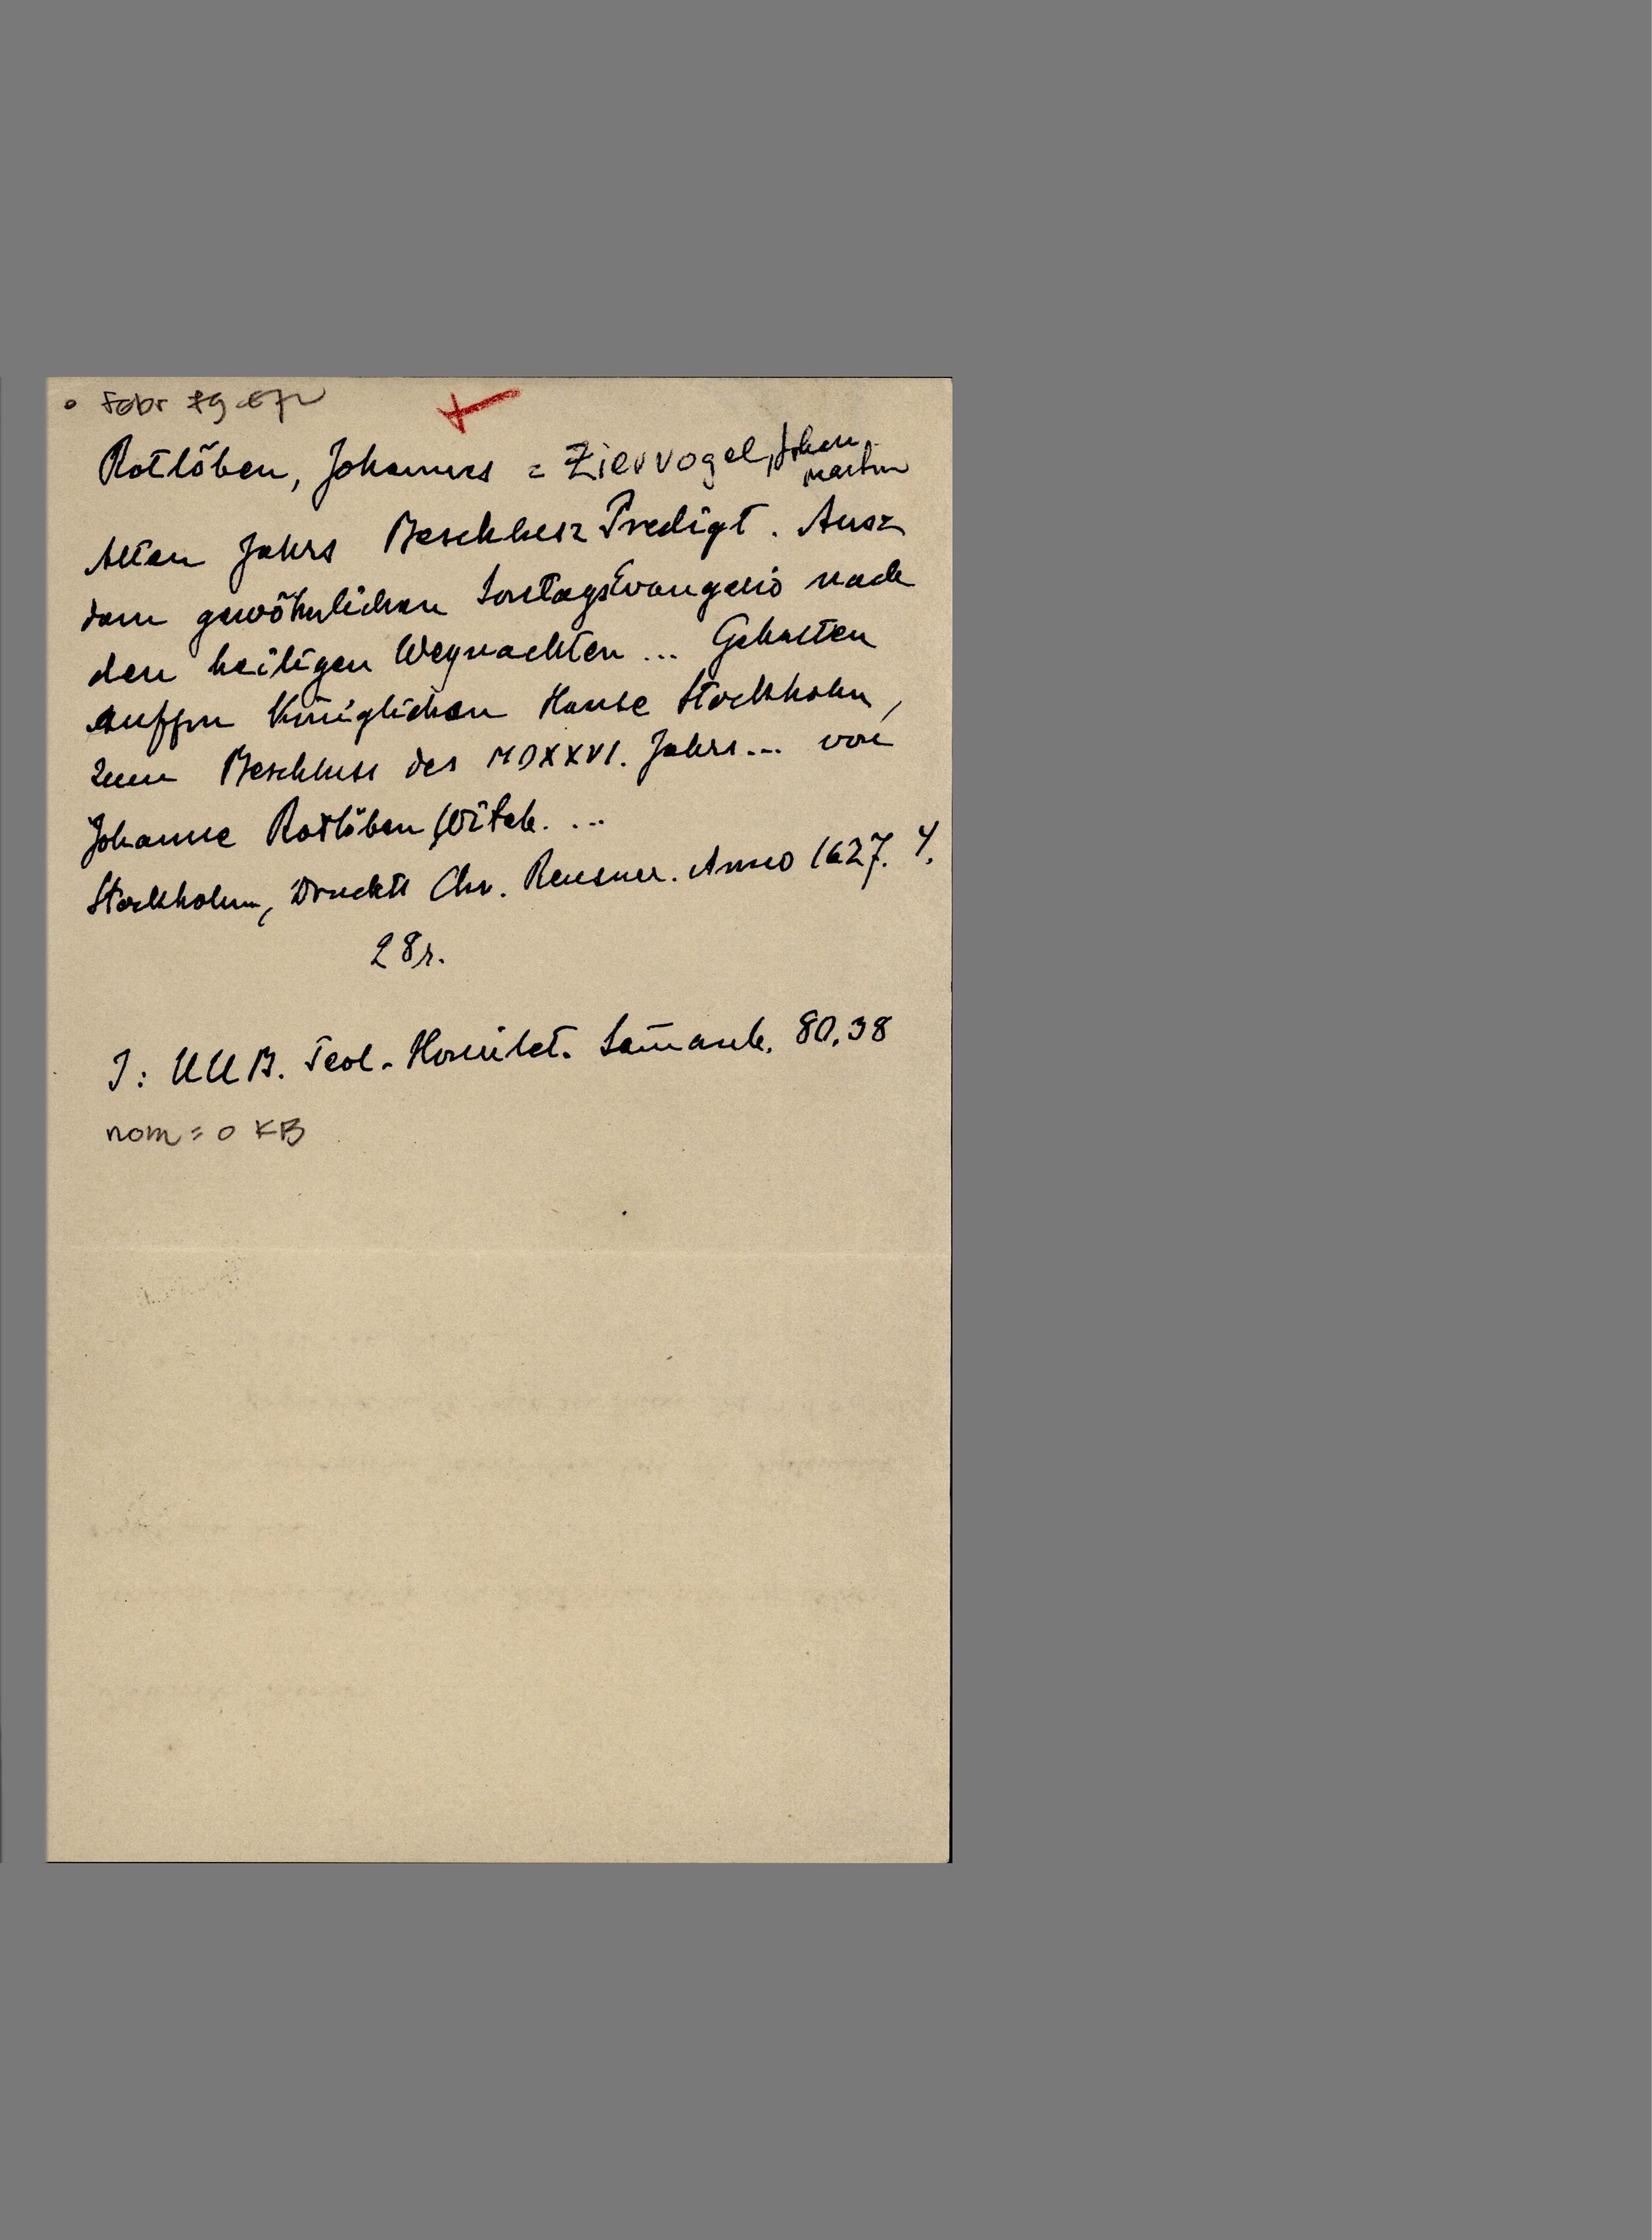 Febr 79
Rotlöben, Johannes = Ziervogel, Johan Martin
Alten Jahrs Beschlusz Predigt. Ausz
dem gewöhnlichen SontagsEvangelio nach
den heiligen Weynachten ... Gehalten
auffm Königlichen Hause Stockholm,
zum Beschluss des MDXXVI. Jahrs ... von
Johanne Rotlöben, Witeb. ...
Stockholm, Druckts Chr. Reusner. Anno 1627. 4.
28 s.
I: UUB. Teol. Homilet. Saml. 80,38
nom = 0 KB